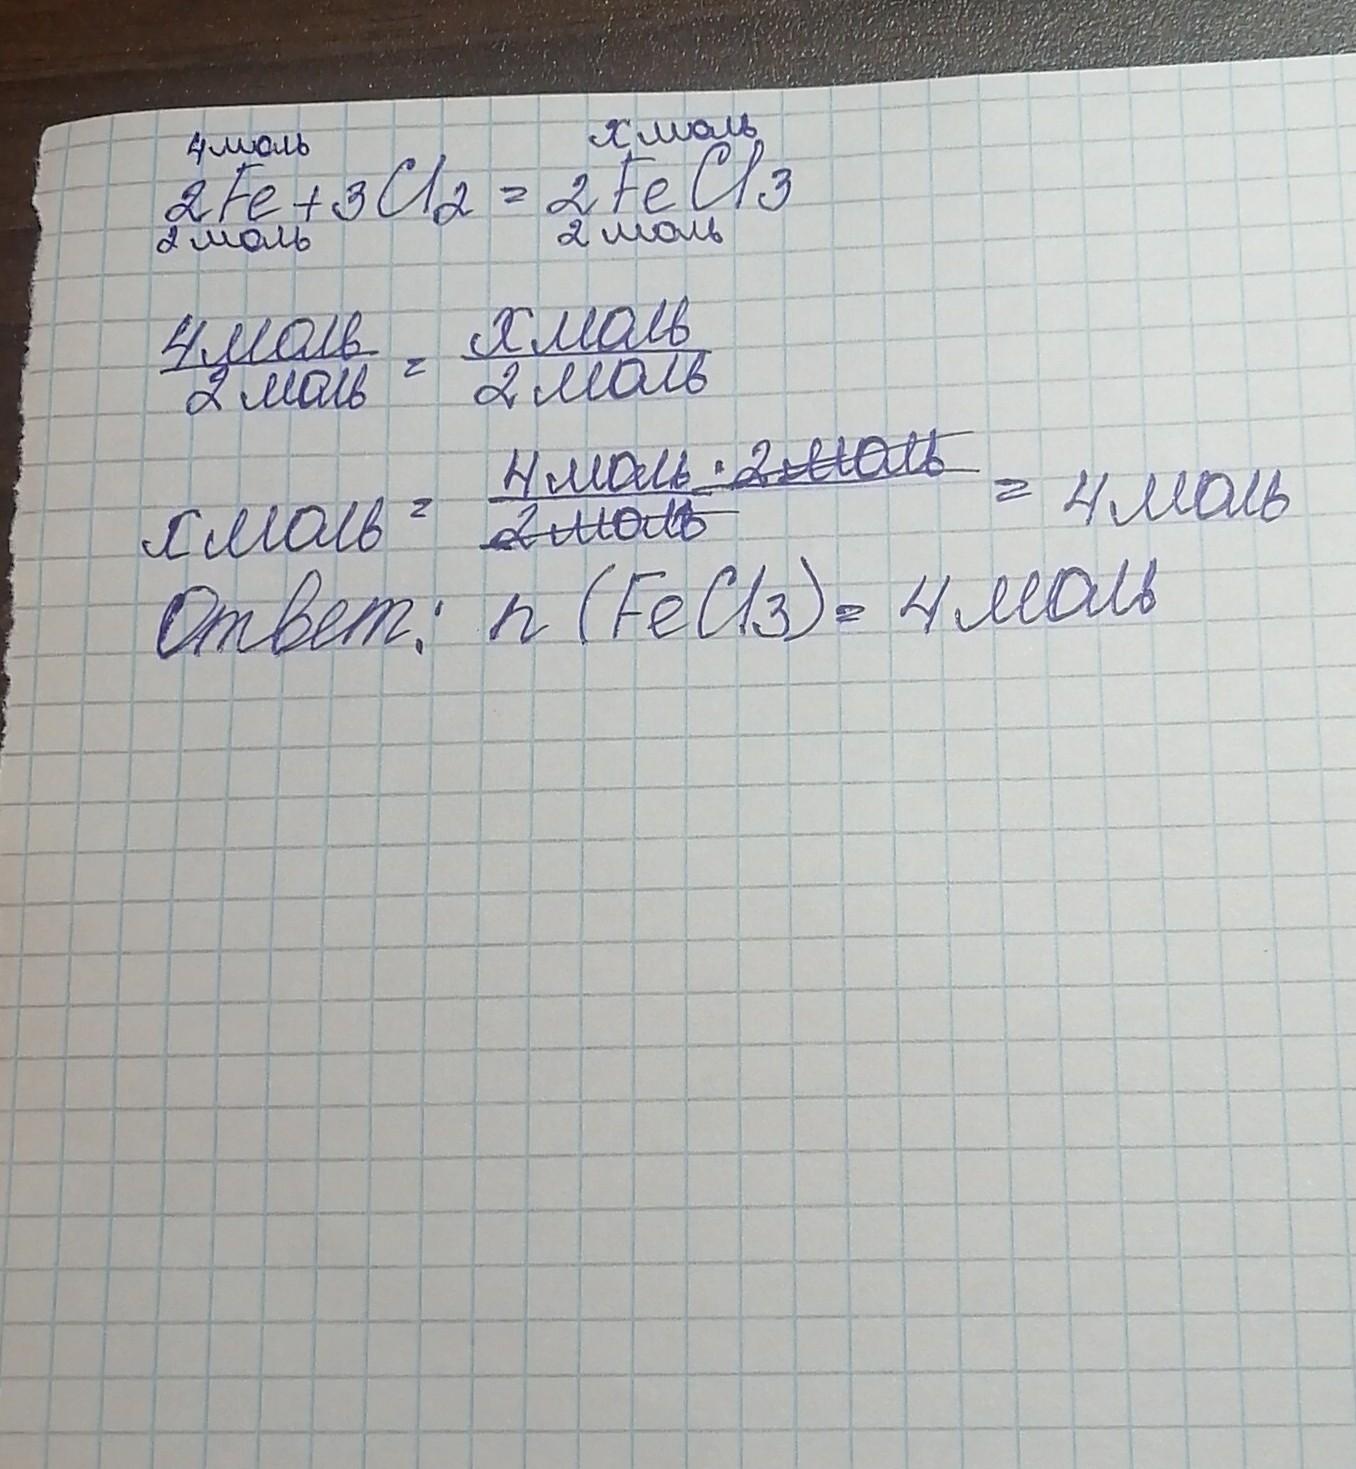 4моль хмоль
2Fe+3Cl2 = 2FeCl3
2моль 2моль
4моль/2моль = хмоль/2моль
хмоль = 4моль·2моль/2моль = 4моль
Ответ: n (FeCl3)= 4моль